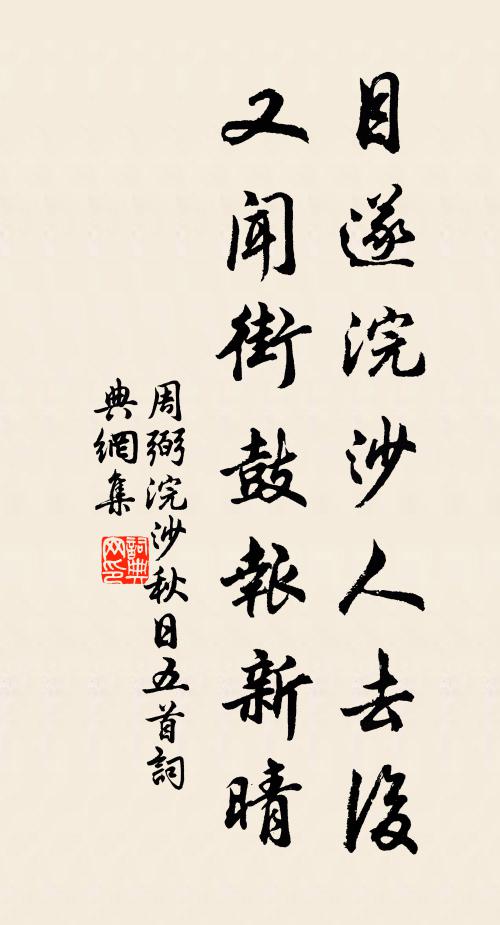 目遂浣沙人去後
又聞街鼓報新晴
周弼浣沙秋日五首詞
典網集
詞典
网印